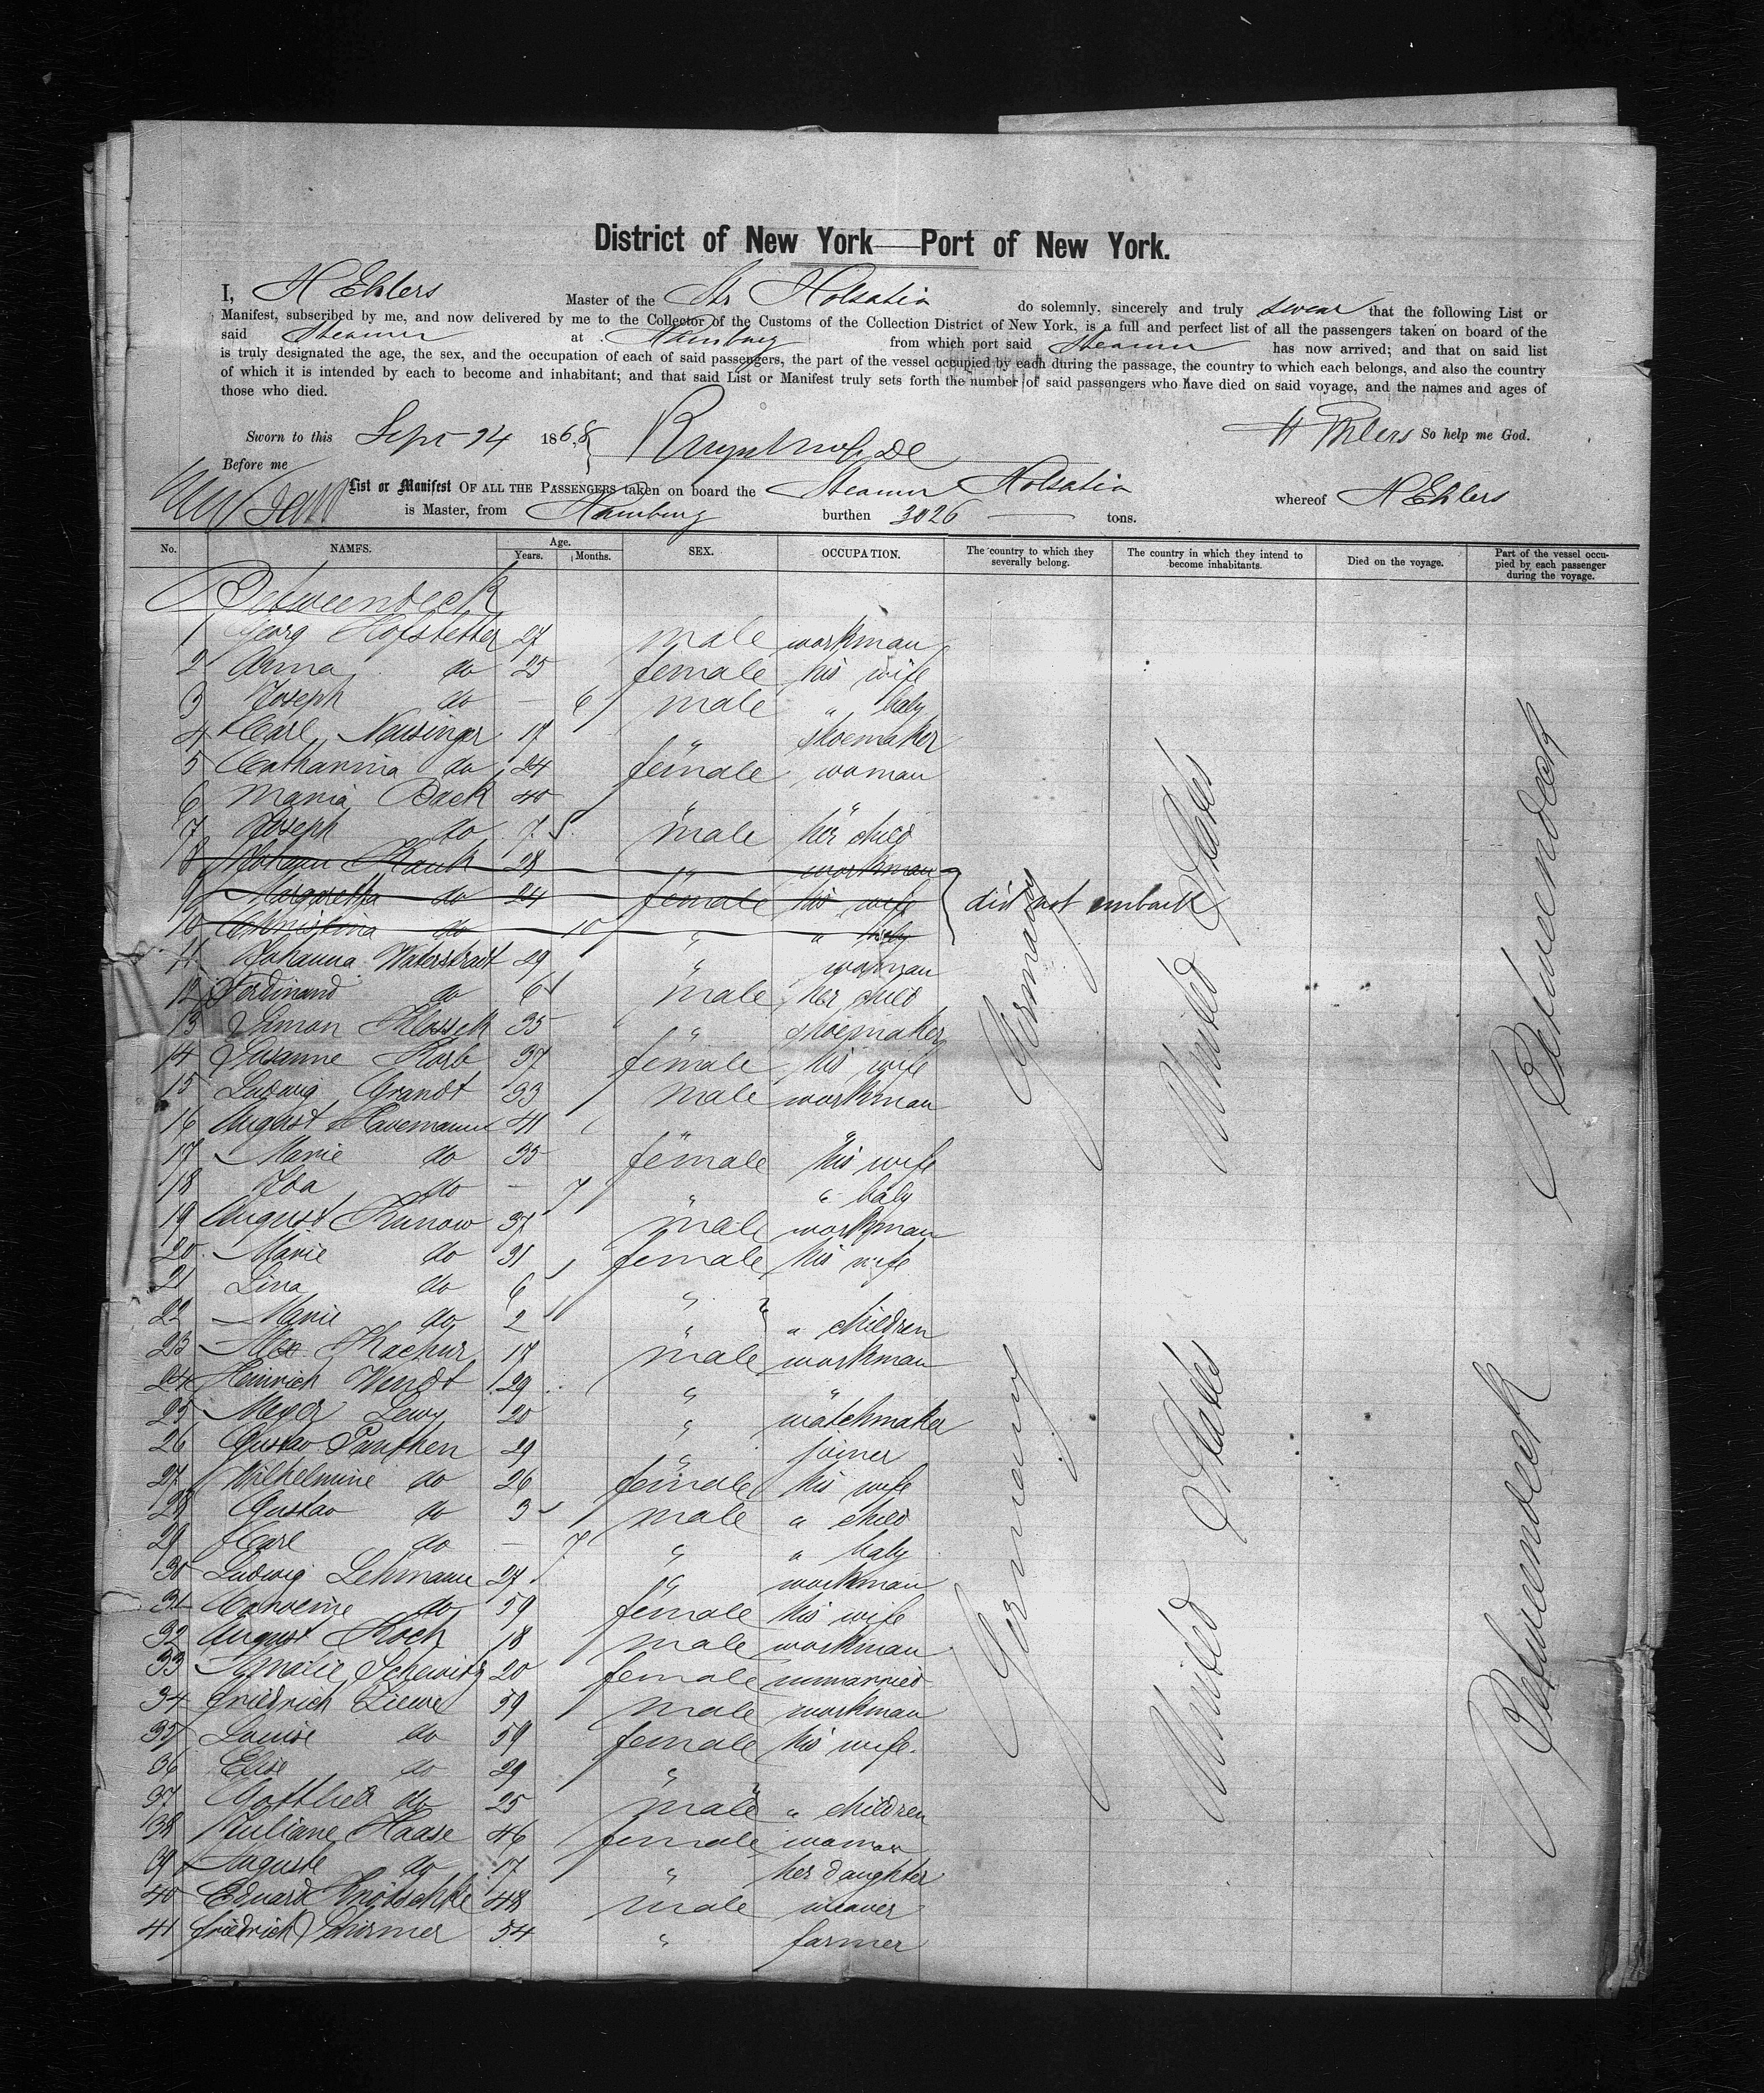 District of New York—Port of New York.
I, H Ehlers Master of the Str Holsatia do solemnly, sincerely and truly swear that the following List or
Manifest, subscribed by me, and now delivered by me to the Collector of the Customs of the Collection District of New York, is a full and perfect list of all the passengers taken on board of the
said Steamer at Hamburg from which port said Steamer has now arrived; and that on said list
is truly designated the age, the sex, and the occupation of each of said passengers, the part of the vessel occupied by each during the passage, the country to which each belongs, and also the country
of which it is intended by each to become and inhabitant; and that said List or Manifest truly sets forth the number of said passengers who have died on said voyage, and the names and ages of
those who died.
H Ehlers So help me God.
Sworn to this Sept 24 1868
Before me
List or Manifest OF ALL THE PASSENGERS taken on board the Steamer Holsatia whereof H Ehlers
is Master, from Hamburg burthen 3026 tons.
No. NAMES. Age. Years. Months. SEX. OCCUPATION. The country to which they severally belong. The country in which they intend to become inhabitants. Died on the voyage. Part of the vessel occupied by each passenger during the voyage.
Betweendeck
1 Georg Hofstetter 27 male workman
2 Anna do 25 female his wife
3 Joseph do — 6 male " baby
4 Carl Nusinger 17 " shoemaker
5 Catharina do 24 female woman
6 Maria Back 40 " "
7 Joseph do 7 male her child
8 Johann Hauk 28 " workman
9 Margaretha do 24 female his wife did not embark
10 Christina do 10 " " baby
11 Johanna Waterstradt 29 " woman
12 Ferdinand do 6 male her child
13 Simon Klossek 35 " shoemaker
14 Susanne Korb 37 female his wife
15 Ludwig Grandt 33 male workman
16 August Havemann 41 " "
17 Marie do 35 female his wife
18 Ida do — 7 " " baby
19 August Kunow 37 male workman
20 Marie do 31 female his wife
21 Lina do 6 "
22 Marie do 2 " " children
23 Alex Kachur 17 male workman
24 Heinrich Wendt 29 " "
25 Meyer Lewy 20 " watchmaker
26 Gustav Panthen 29 " joiner
27 Wilhelmine do 26 female his wife
28 Gustav do 3 male " child
29 Carl do — 7 " " baby
30 Ludwig Lehmann 27 " workman
31 Caroline do 59 female his wife
32 August Koch 18 male workman
33 Amalie 20 female unmarried
34 Friedrich Liewe 59 male workman
35 Louise do 59 female his wife.
36 Elise do 29 "
37 Gottlieb do 25 male " children
38 Juliane Haase 46 female woman
39 Auguste do 17 " her daughter
40 Eduard Knötschke 48 male weaver
41 Friedrich Schirmer 54 " farmer
Germany
United States
Betweendeck
Germany
United States
Betweendeck